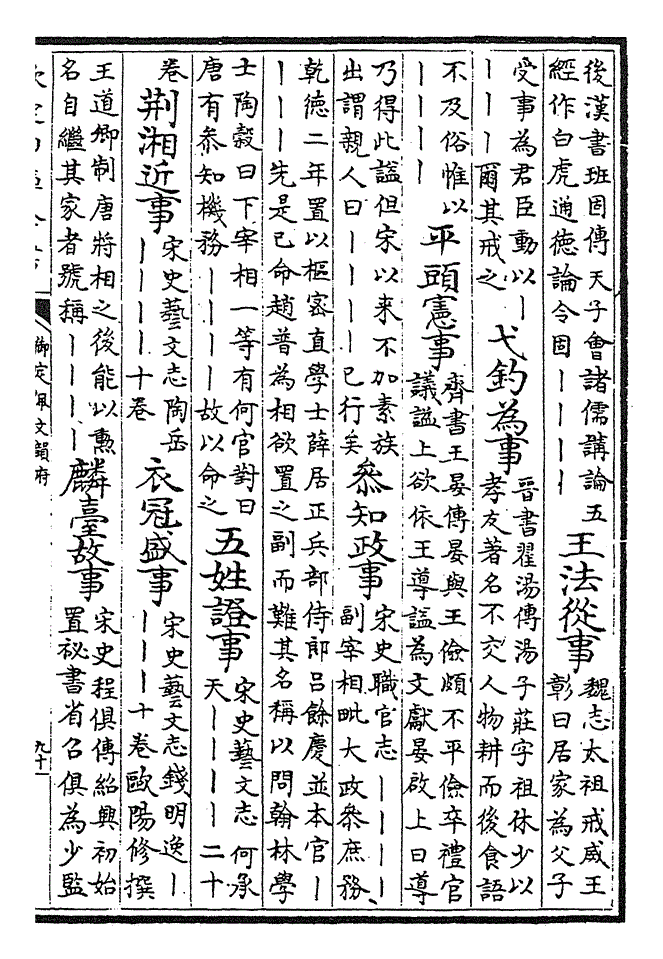 後漢書班固傳天子會諸儒講論五
經作白虎通德論令固丨丨丨丨
王法從事
魏志太祖戒威王
彰曰居家為父子
受事為君臣動以丨
丨丨丨爾其戒之
弋釣為事
晉書翟湯傳湯子莊字祖休少以
孝友著名不交人物耕而後食語
不及俗惟以
丨丨丨丨
平頭憲事
齊書王晏傳晏與王儉頗不平儉卒禮官
議謚上欲依王導謚為文獻晏啟上曰導
乃得此謚但宋以來不加素族
出謂親人曰丨丨丨丨已行矣
叅知政事
宋史職官志丨丨丨丨
副宰相毗大政叅庶務
乾德二年置以樞密直學士薛居正兵部侍郎呂餘慶並本官丨
丨丨丨先是已命趙普為相欲置之副而難其名稱以問翰林學
士陶穀曰下宰相一等有何官對曰
唐有叅知機務丨丨丨丨故以命之
五姓證事
宋史藝文志何承
天丨丨丨丨二十
卷
荆湘近事
宋史藝文志陶岳
丨丨丨丨十卷
衣冠盛事
宋史藝文志錢明逸丨
丨丨丨十卷歐陽修撰
王道卿制唐將相之後能以勲
名自繼其家者號稱丨丨丨丨
麟臺故事
宋史程俱傳紹興初始
置祕書省召俱為少監
御定佩文韻府
九十一